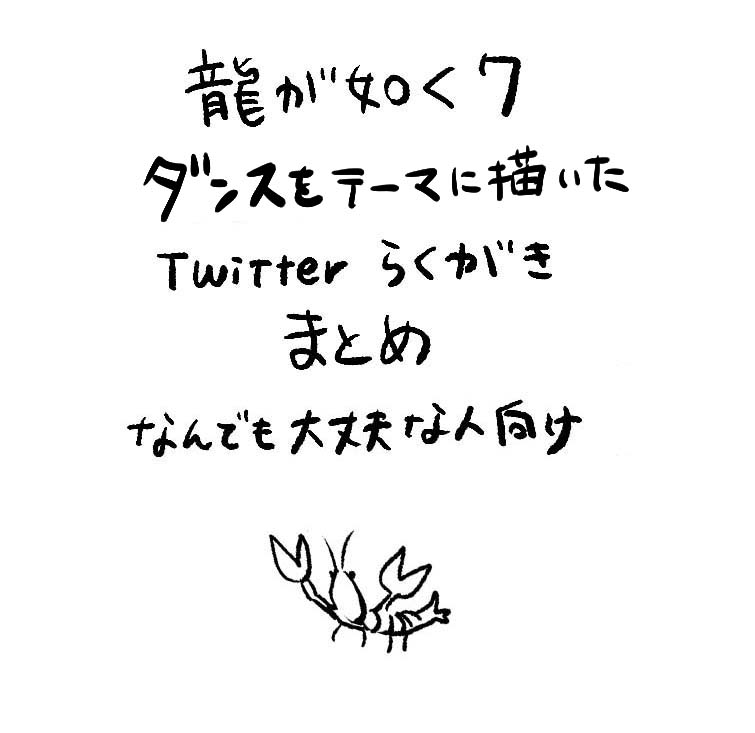 龍が如く7
ダンスをテーマに描いた
Twitter らくがき
まとめ
なんでも大丈夫な人向け